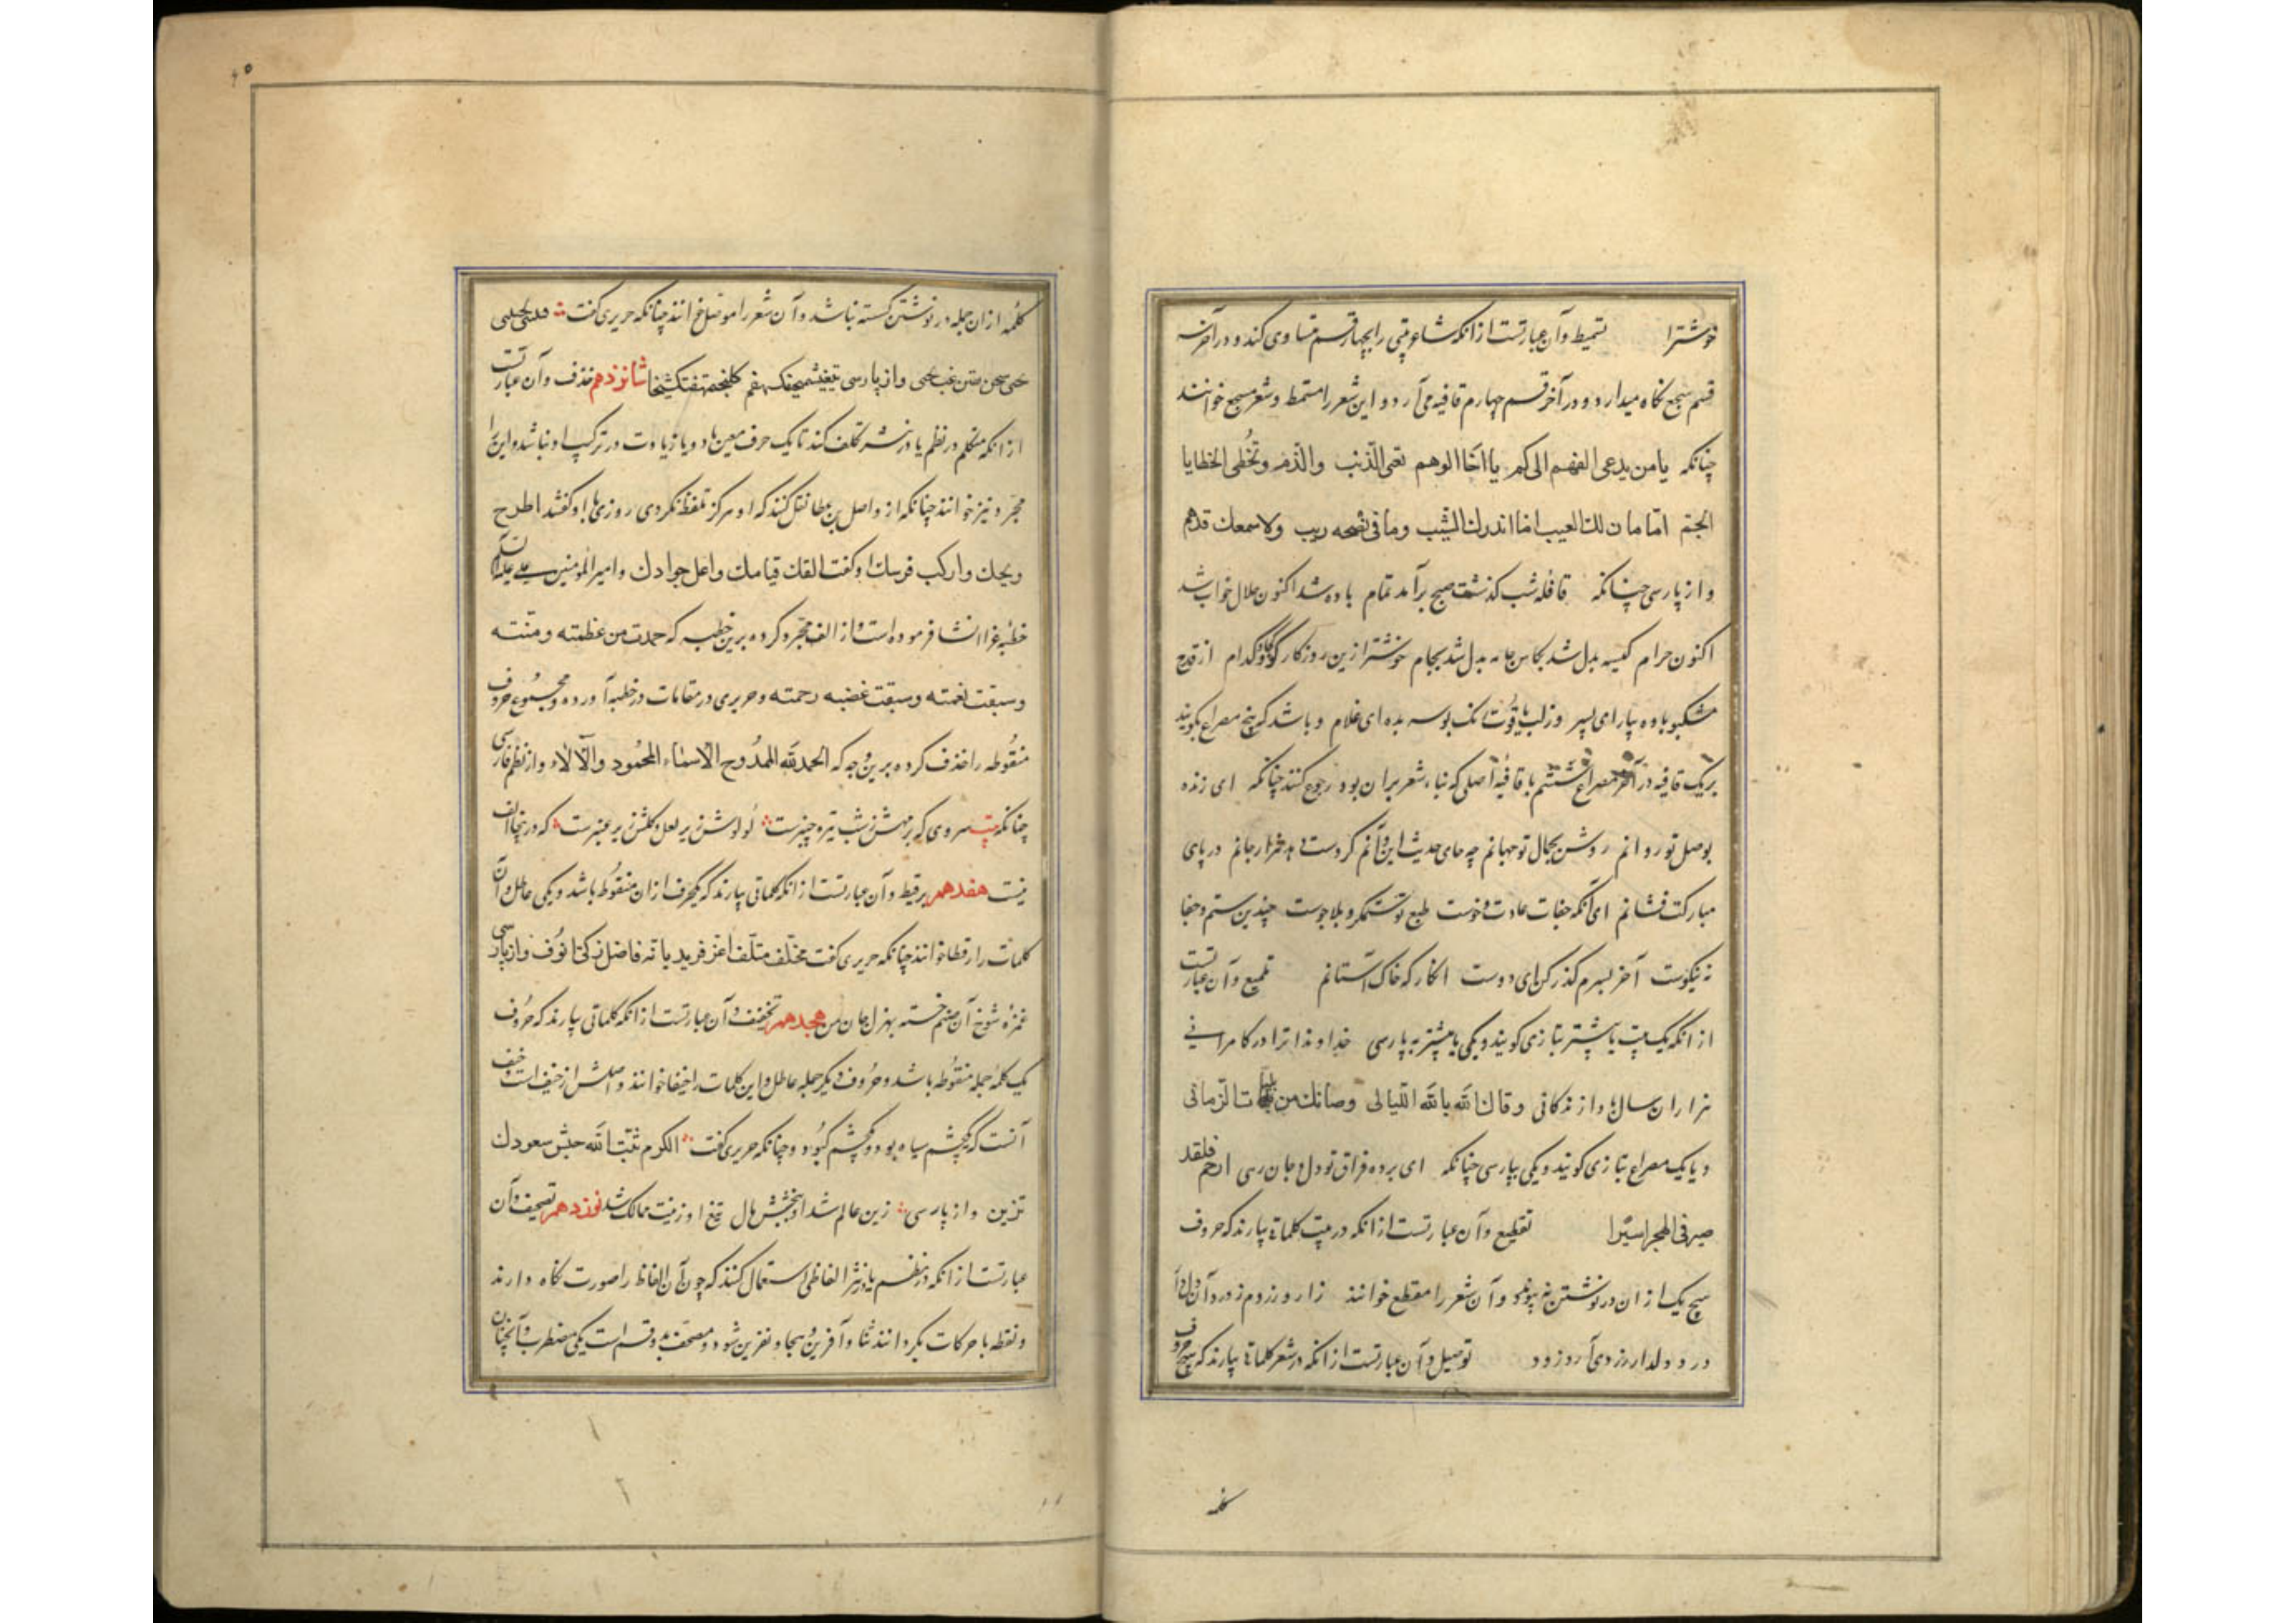 خوشترا تسمیط وآن عبارتست ازانکه شاعر بیتی رابچهار قسم متساوی کند ودرآخر سه
قسم سجع نکاه میدارد ودر آخر قسم چهارم قافیه می آرد و این شعر را مسمّط وشعر مسجع خوانند
چنانکه یا من یدعی الفهم الی کم یا اخا الوهم تعبی الذنب والذم وتخطی الخطایا
الجم اما مان لك العیب اما انذرك الشیب وما فی نصحه ریب ولاسمعك قدهم
واز پارسی چنانکه قافله شب کذشت صبح برآمد تمام باده شد اکنون حلال خواب شد
اکنون حرام کیسه بدل شد بکاس جامه بدل شد بجام خوشتر ازین روزکار کو کدام از قدح
مشکبو باده بیار ای پسر وز لب یاقوت نک بوسه بده ای غلام و باشد که پنج مصراع بکویند
بریک قافیه در آخر مصراع ششم با قافیهٔ اصلی که بناء شعر بران بود رجوع کنند چنانکه ای زنده
بوصل تو روانم روشن بجمال تو جهانم چه جای حدیث این وآنم کر دست دهد هزار جانم در پای
مبارکت فشانم ای آنکه جفات عادت وخوست طبع تو ستمکر و بلاجوست چندین ستم وجفا
نه نیکوست آخر بسرم کذر کن ای دوست انکار که خاک آستانم تلمیع وآن عبارتست
از انکه یک بیت یا بیشتر بتازی کویند ویکی یا بیشتر به پارسی خداوندا ترا در کامرانی
هزاران سال بادا زندکانی وقاك الله یا لله اللیالی وصانك من الزمانی
ویا یک مصراع بتازی کویند ویکی بپارسی چنانکه ای برده فراق تو دل وجان رهی ارحم فلقد
صرفی الهجر اسیرا تقطیع وآن عبارتست ازانکه در بیت کلماتی بیارند که حروف
هیچ یک از ان در نوشتن نه پیوندد وآن شعر را مقطع خوانند زار و زردم ز درد آن دل آرا
درد دلدار زردی آرد زود توصیل وآن عبارتست ازانکه در شعر کلماتی بیارند که هیچ حروف
کلمه
کلمه ازان جمله در نوشتن کسسته نباشد وآن شعر را موصل خوانند چنانکه حریری کفت
واز پارسی شانزدهم حذف وآن عبارتست
از انکه متکلم در نظم یا در نثر تکلف کند تا یک حرف معین یا دو یا زیادت در ترکیب او نباشد واین را
مجرد نیز خوانند چنانکه از واصل بن عطا نقل کنند که او هرکز تلفظ نکردی روزی با او کفتند اطرح
رمحك وارکب فرسك او کفت الق قناتك واعل جوادك وامیرالمؤمنین علی علیه السلم
خطبهٔ غرا انشا فرموده است واز الف مجرد کرده برین خطبه که حمدت من عظمته ومنته
وسبقت نعمته وسبقت غضبه رحمته وحریری در مقامات در خطبه آورده ومجموع حروف
منقوطه را حذف کرده برین وجه که الحمد لله الممدوح الاسماء المحمود والآلاء واز نظم فارسی
چنانکه بیت سروی که برمهش زشب تیره چنبرست لولوش زیر لعل وکلش زیر عنبرست که در اینجا الف
نیست هفدهم رقیط وآن عبارتست از انکه کلماتی بیارند که یکحرف از ان منقوط باشد ویکی عاطل وآن
کلمات را رقطا خوانند چنانکه حریری کفت مخلف متلف اغر فرید نابه فاضل زکی انوف واز پارسی
غمزهٔ شوخ آن صنم خسته بهزل جان من هجدهم تخفیف وآن عبارتست از انکه کلماتی بیارند که حروف
یک کلمه جمله منقوطه باشد وحروف دیکر جمله عاطل واین کلمات را خیفا خوانند واصلش از خیف است وخیف
آنست که یکچشم سیاه بود ویکچشم کبود وچنانکه حریری کفت الکرم ثبت الله جیش سعودك
تزین واز پارسی زین عالم شد او ببخشش مال تیغ او زینت ممالک شد نوزدهم تصحیف وآن
عبارتست از انکه در نظم یا در نثر الفاظی استعمال کنند که چون آن الفاظ را صورت نکاه دارند
ونقطه یا حرکات بکردانند ثنا وآفرین هجا ونفرین شود ومصحف بدو قسم است یکی مضطرب وآنچنان